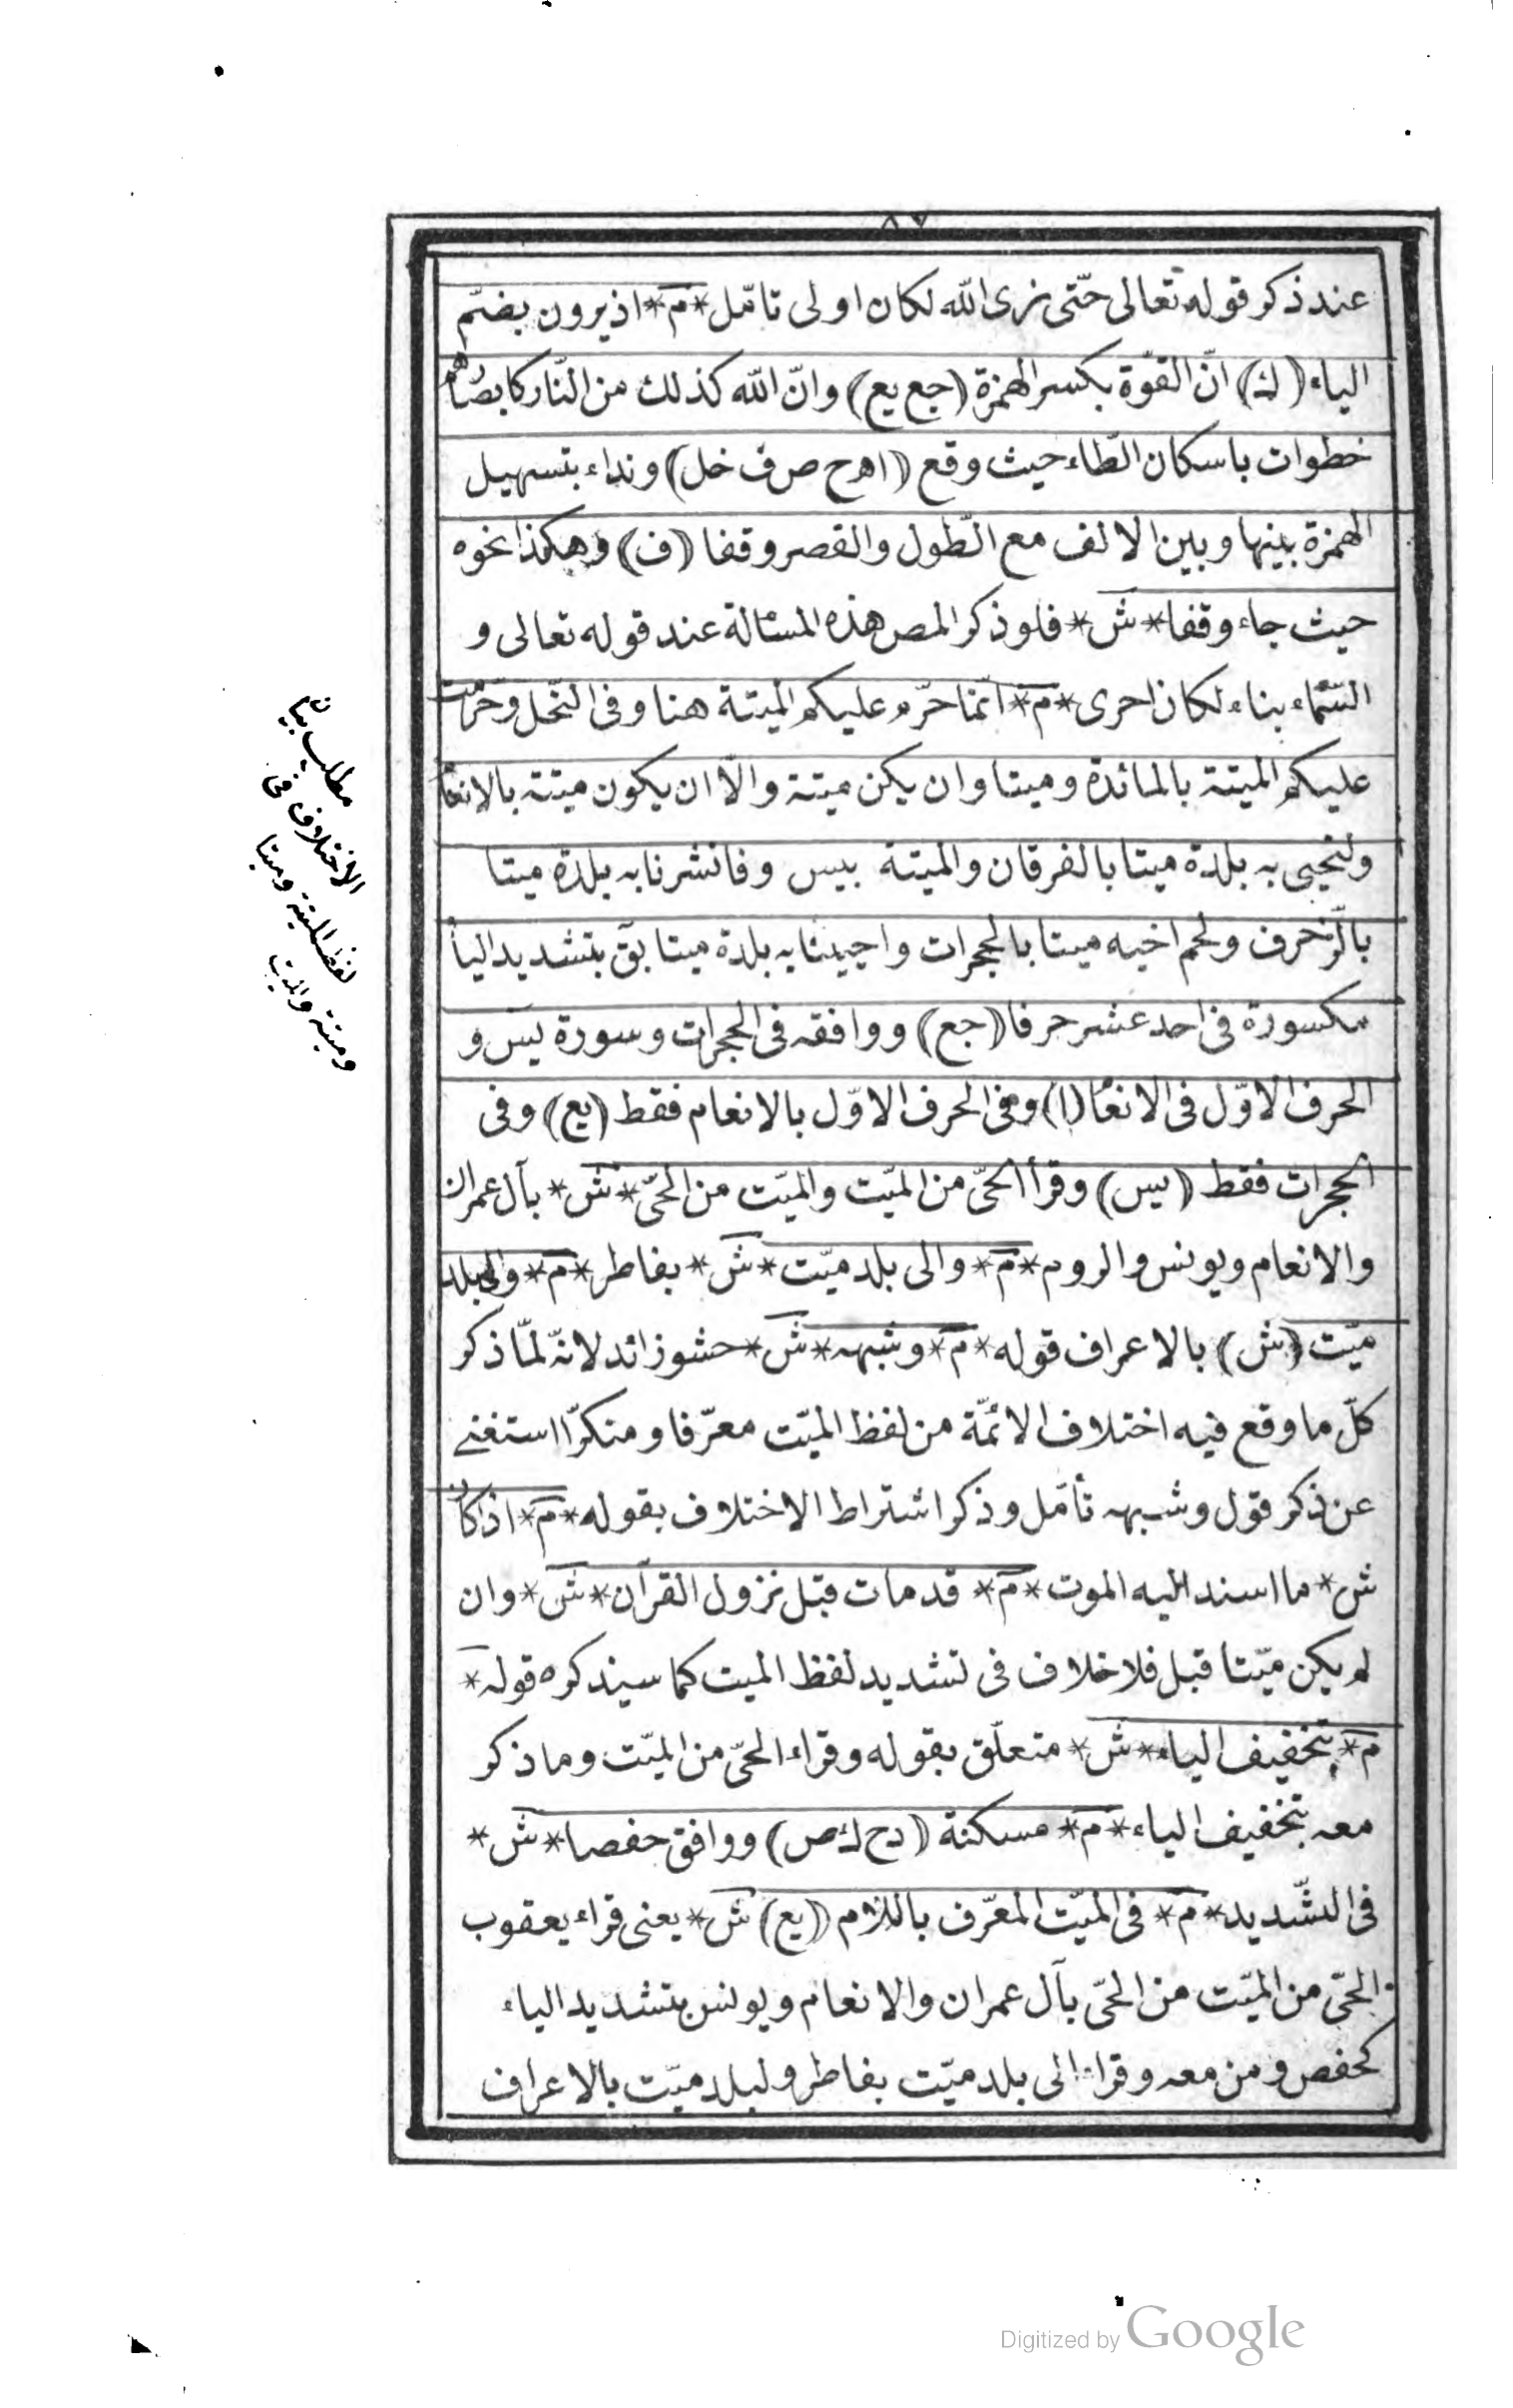 ٨٧
عند ذكر قوله تعالى حتّى نرى اللّه لكان اولى تامّل *م* اذ يرون بضمّ
الياء (ك) انّ القوّة بكسر الهمزة (جع يع) وانّ اللّه كذلك من النّار كابصارهم
خطوات باسكان الطّاء حيث وقع (اهح صف خل) ونداء بتسهيل
الهمزة بينها وبين الالف مع الطّول والقصر وقفا (ف) وهكذا نحوه
حيث جاء وقفا *ش* فلو ذكر المص هذه المسئالة عند قوله تعالى و
السّماء بناء لكان احرى *م* انّما حرّم عليكم الميتة هنا وفى النّحل وحرّمت
عليكم الميتة بالمائدة وميتا وان يكن ميتة والّا ان يكون ميتة بالانعام
ولنحيى به بلدة ميتا بالفرقان والميتة بيس وفانشرنا به بلدة ميتا
بالزّخرف ولحم اخيه ميتا بالحجرات واحيينا به بلدة ميتا بق بتشديد الياء
مكسورة فى احد عشر حرفا (جع) ووافقه فى الحجرات وسورة يس و
الحرف الاوّل فى الانعام (ا) وفى الحرف الاوّل بالانعام فقط (يع) وفى
الحجرات فقط (يس) وقرأ الحىّ من الميّت والميّت من الحىّ *ش* بآل عمران
والانعام ويونس والروم *م* والى بلد ميّت *ش* بفاطر *م* ولبلد
ميّت (ش) بالاعراف قوله *م* وشبهه *ش* حشو زائد لانّه لمّا ذكر
كلّ ما وقع فيه اختلاف الائمّة من لفظ الميّت معرّفا ومنكرّا استغنى
عن ذكر قول وشبهه تأمّل وذكر اشتراط الاختلاف بقوله *م* اذا كان
ش* ما اسند اليه الموت *م* قد مات قبل نزول القرآن *ش* وان
لم يكن ميّتا قبل فلا خلاف فى تشديد لفظ الميت كما سيذكره قوله *
م* بتخفيف الياء *ش* متعلّق بقوله وقراء الحىّ من الميّت وما ذكر
معه بتخفيف الياء *م* مسكنة (دح ك ص) ووافق حفصا *ش*
فى التّشديد *م* فى الميّت المعرّف باللام (يع) ش* يعنى قراء يعقوب
الحىّ من الميّت من الحىّ بآل عمران والانعام ويونس بتشديد الياء
كحفص ومن معه وقرا الى بلد ميّت بفاطر ولبلد ميّت بالاعراف
مطلب بيان
الاختلاف فى
لفظ الميتة وميتا
وميتة والميت
Digitized by Google